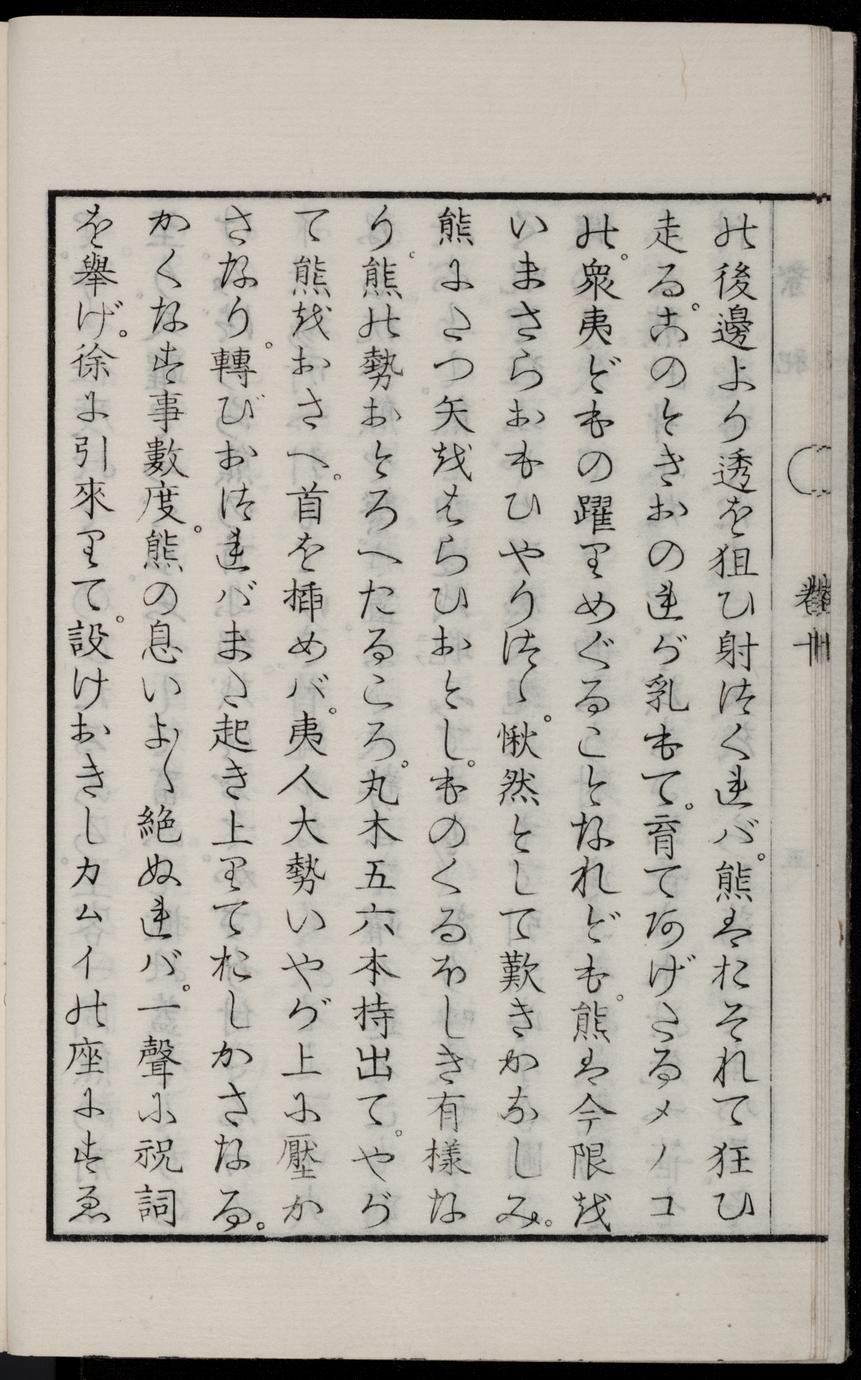 の後邊より透を狙ひ射つくれバ。熊はおそれて狂ひ
走る。このときおのれが乳もて。育てあげたるメノコ
の。衆夷どもの躍りめぐることなれども。熊は今限を
いまさらおもひやりつゝ。愀然として歎きかなしみ。
熊にたつ矢をはらひおとし。ものくるほしき有樣な
り。熊の勢おとろへたるころ。丸木五六本持出て。やが
て熊をおさへ。首を挿めバ。夷人大勢いやが上に壓か
さなり。轉びおつれバまた起き上りておしかさなる。
かくなす事數度。熊の息いよ〳〵絶ぬれバ。一聲に祝詞
を舉げ。徐に引來りて。設けおきしカムイの座にすゑ